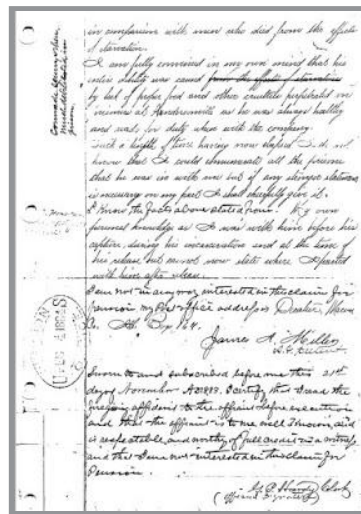 in comparison with men who died from the effects
of starvation.
I am fully convinced in my own mind that his
entire disability was caused from the effects of starvation
by lack of proper food and other cruelties perpetrated on
prisoners at Andersonville as he was always healthy
and ready for duty when with the company.
Such a length of time having now elapsed I do not
know that I could enumerate all the prisons
that he was in with me but if any stronger statement
is necessary on my part I shall cheerfully give it.
I Know the facts above stated from my own
personal knowledge as I was with him before his
capture, during his incarceration and at the time of
his release but
with him after
I am not in any way interested in this claim for
pension, my Post office address is Decatur, Macon
Co. Ill, Box 164.
James A. Miller
Sworn to and subscribed before me this 21st
day of November A.D. I certify that I read the
foregoing affidavit to the affiant before execution
and that the affiant is to me well known, and
is respectable and worthy of full credit as a witness
and that I am not interested in this claim for
Pension.
Clerk
(official signature)
Comrade
much
prison